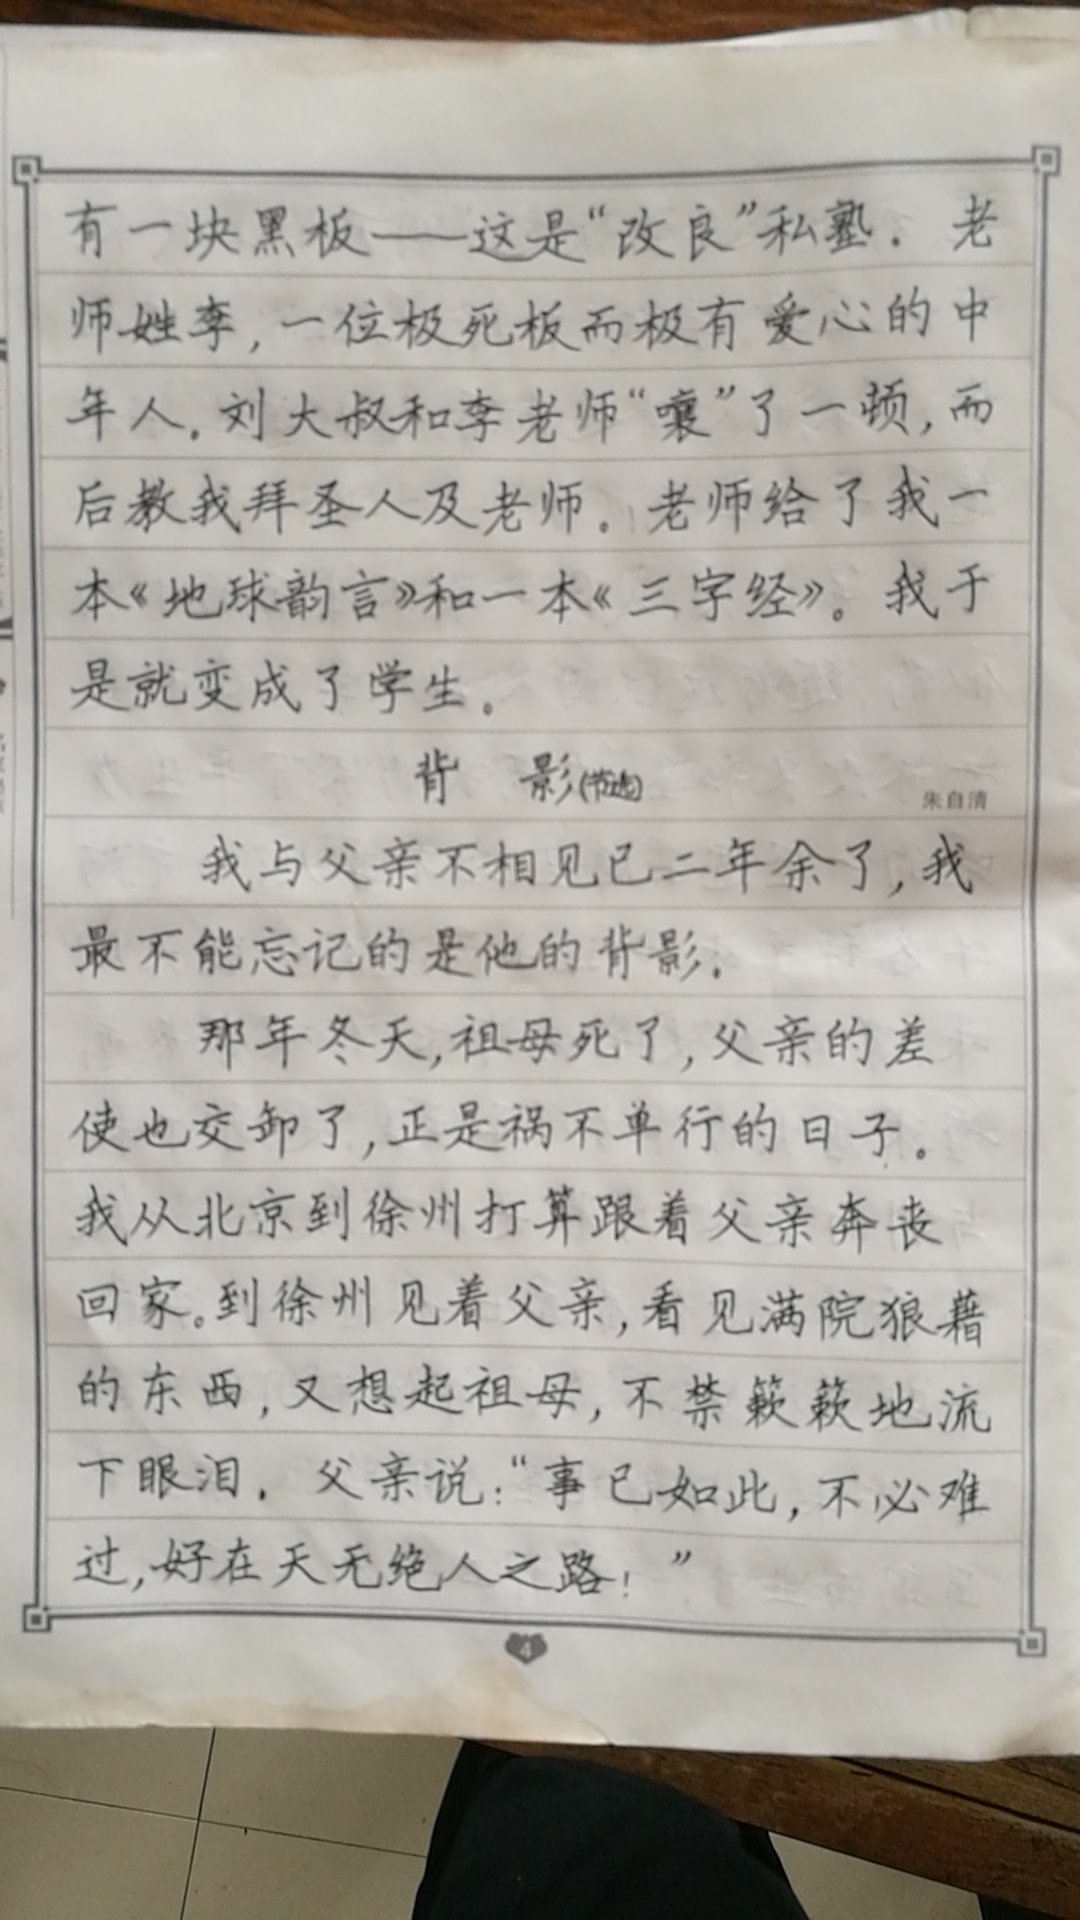 有一块黑板——这是“改良”私塾。老
师姓李，一位极死板而极有爱心的中
年人。刘大叔和李老师“嚷”了一顿，而
后教我拜圣人及老师。老师给了我一
本《地球韵言》和一本《三字经》。我于
是就变成了学生。
背 影(节选)
朱自清
我与父亲不相见已二年余了，我
最不能忘记的是他的背影。
那年冬天，祖母死了，父亲的差
使也交卸了，正是祸不单行的日子。
我从北京到徐州打算跟着父亲奔丧
回家。到徐州见着父亲，看见满院狼藉
的东西，又想起祖母，不禁簌簌地流
下眼泪。父亲说：“事已如此，不必难
过，好在天无绝人之路！”
4